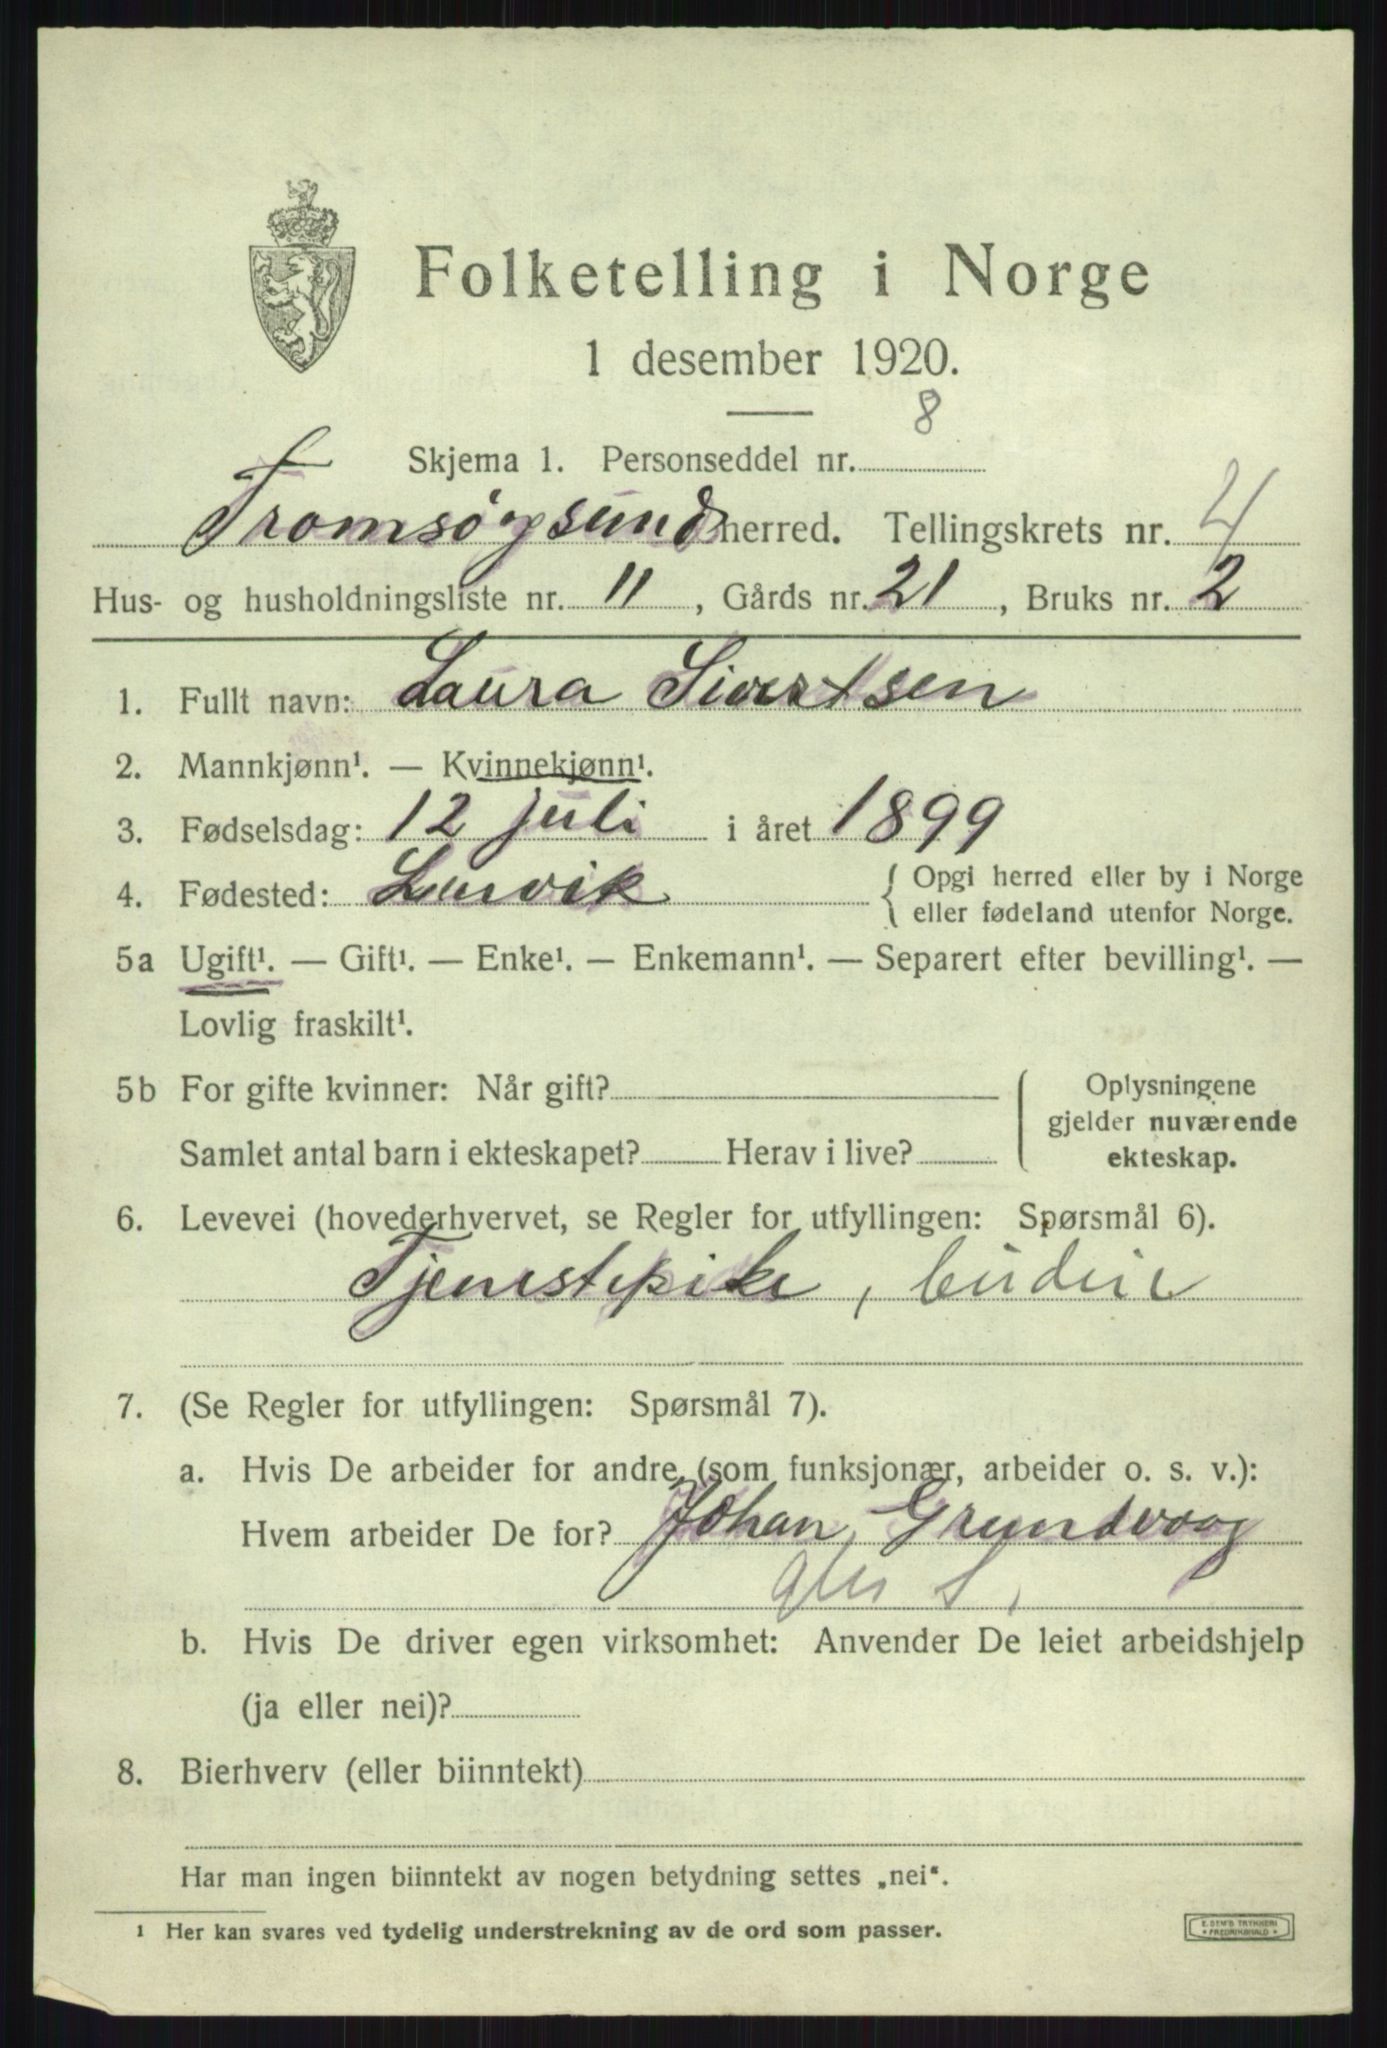 Folketelling i Norge
1 desember 1920.
Skjema 1. Personseddel nr. 8
Tromsøysund herred. Tellingskrets nr. 4
Hus- og husholdningsliste nr. 11, Gårds nr. 21, Bruks nr. 2
1. Fullt navn: Laura Sivertsen
2. Mannkjønn¹. — Kvinnekjønn¹.
3. Fødselsdag: 12 juli i året 1899
4. Fødested: Lenvik { Opgi herred eller by i Norge
eller fødeland utenfor Norge.
5a Ugift¹. — Gift¹. — Enke¹. — Enkemann¹. — Separert efter bevilling¹. —
Lovlig fraskilt¹.
5b For gifte kvinner: Når gift?
Samlet antal barn i ekteskapet? Herav i live?
Oplysningene
gjelder nuværende
ekteskap.
6. Levevei (hovederhvervet, se Regler for utfyllingen: Spørsmål 6).
Tjenestepike, budeie
7. (Se Regler for utfyllingen: Spørsmål 7).
a. Hvis De arbeider for andre (som funksjonær, arbeider o. s. v.):
Hvem arbeider De for? Johan Grundvaag
b. Hvis De driver egen virksomhet: Anvender De leiet arbeidshjelp
(ja eller nei)?
8. Bierhverv (eller biinntekt)
Har man ingen biinntekt av nogen betydning settes „nei“.
¹ Her kan svares ved tydelig understrekning av de ord som passer.
E. SEM'S TRYKKERI
FREDRIKSHALD